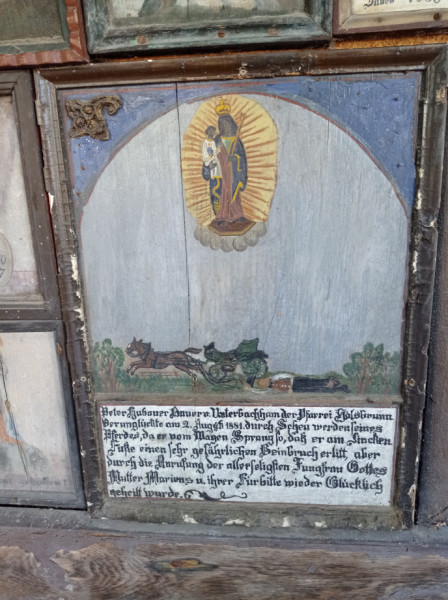 Peter Hubauer Bauer v. Unterbachham der Pfarrei Adlsbrunn
Verunglückte am 2. August 1881 durch Scheu werden seines
Pferdes, da er vom Wagen Sprang so, daß er am Lincken
Fuße einen sehr gefährlichen Beinbruch erlitt, aber
durch die Anrufung der allerseligsten Jungfrau Gottes
Mutter Mariens u. ihrer Fürbitte wieder Glücklich
geheilt wurde.